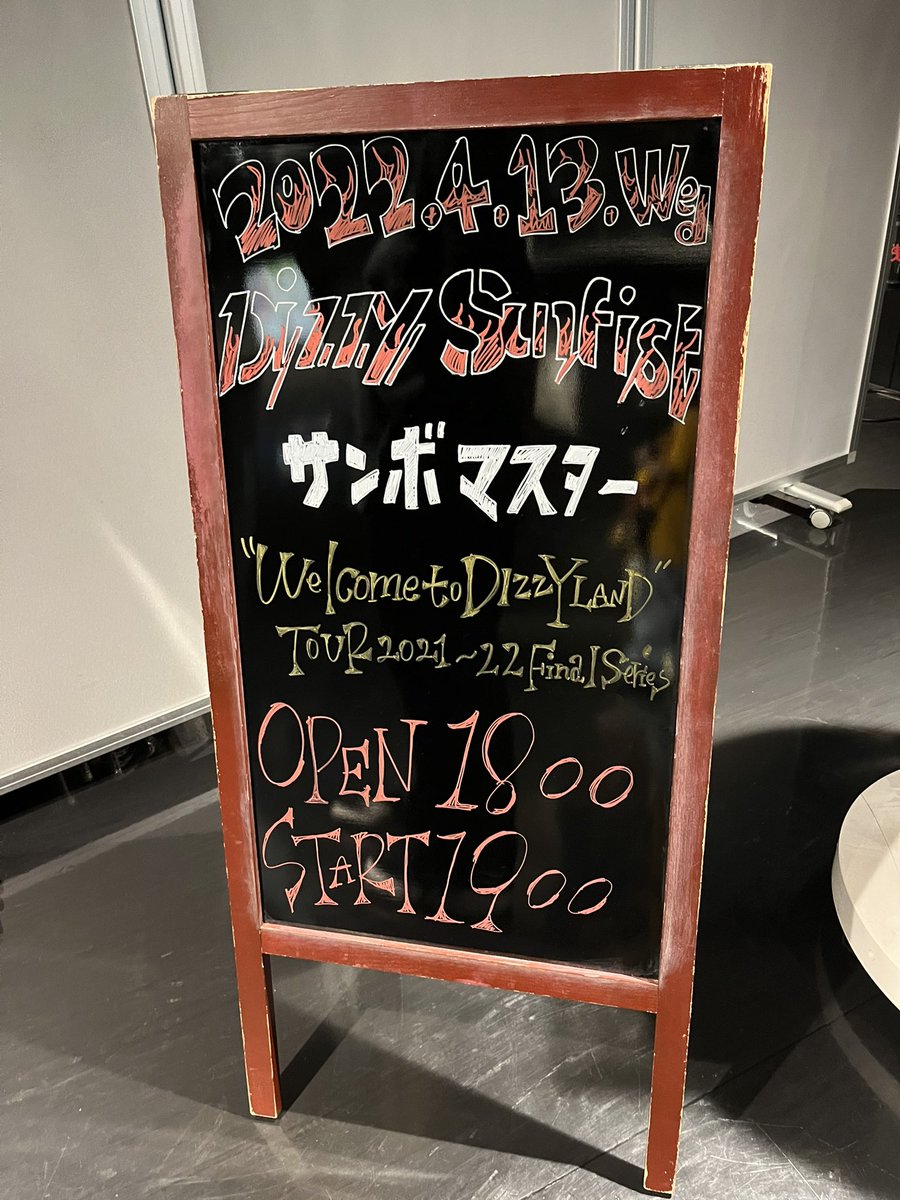 2022.4.13.Wed
Dizzy Sunfist
サンボマスター
"Welcome to DIZZYLAND"
TOUR 2021~22 Final Series
OPEN 1800
START 1900